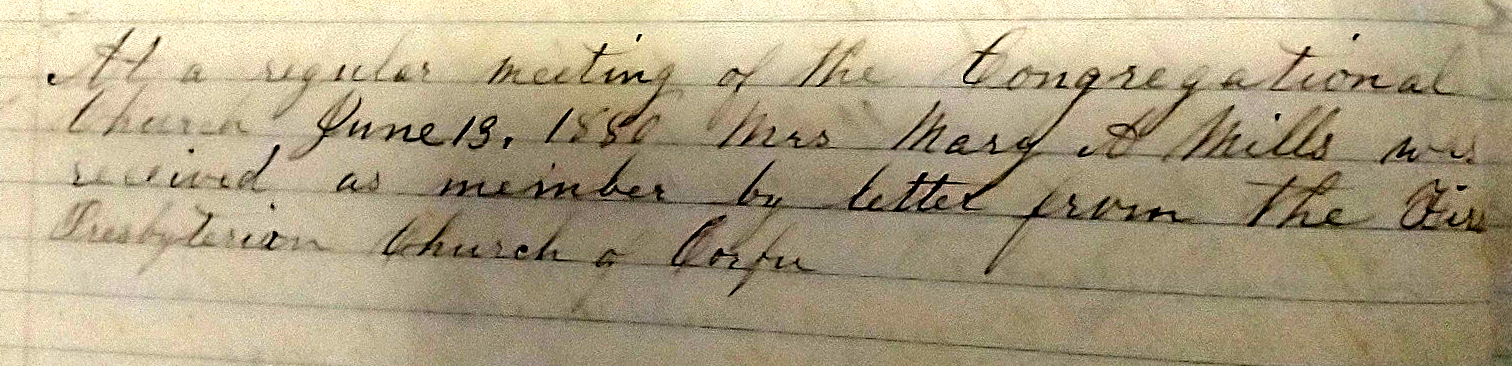 At a regular meeting of the Congregational
Church June 13, 1880 Mrs Mary A Mills was
received as member by letter from the Firs
Presbyterian Church of Corfu